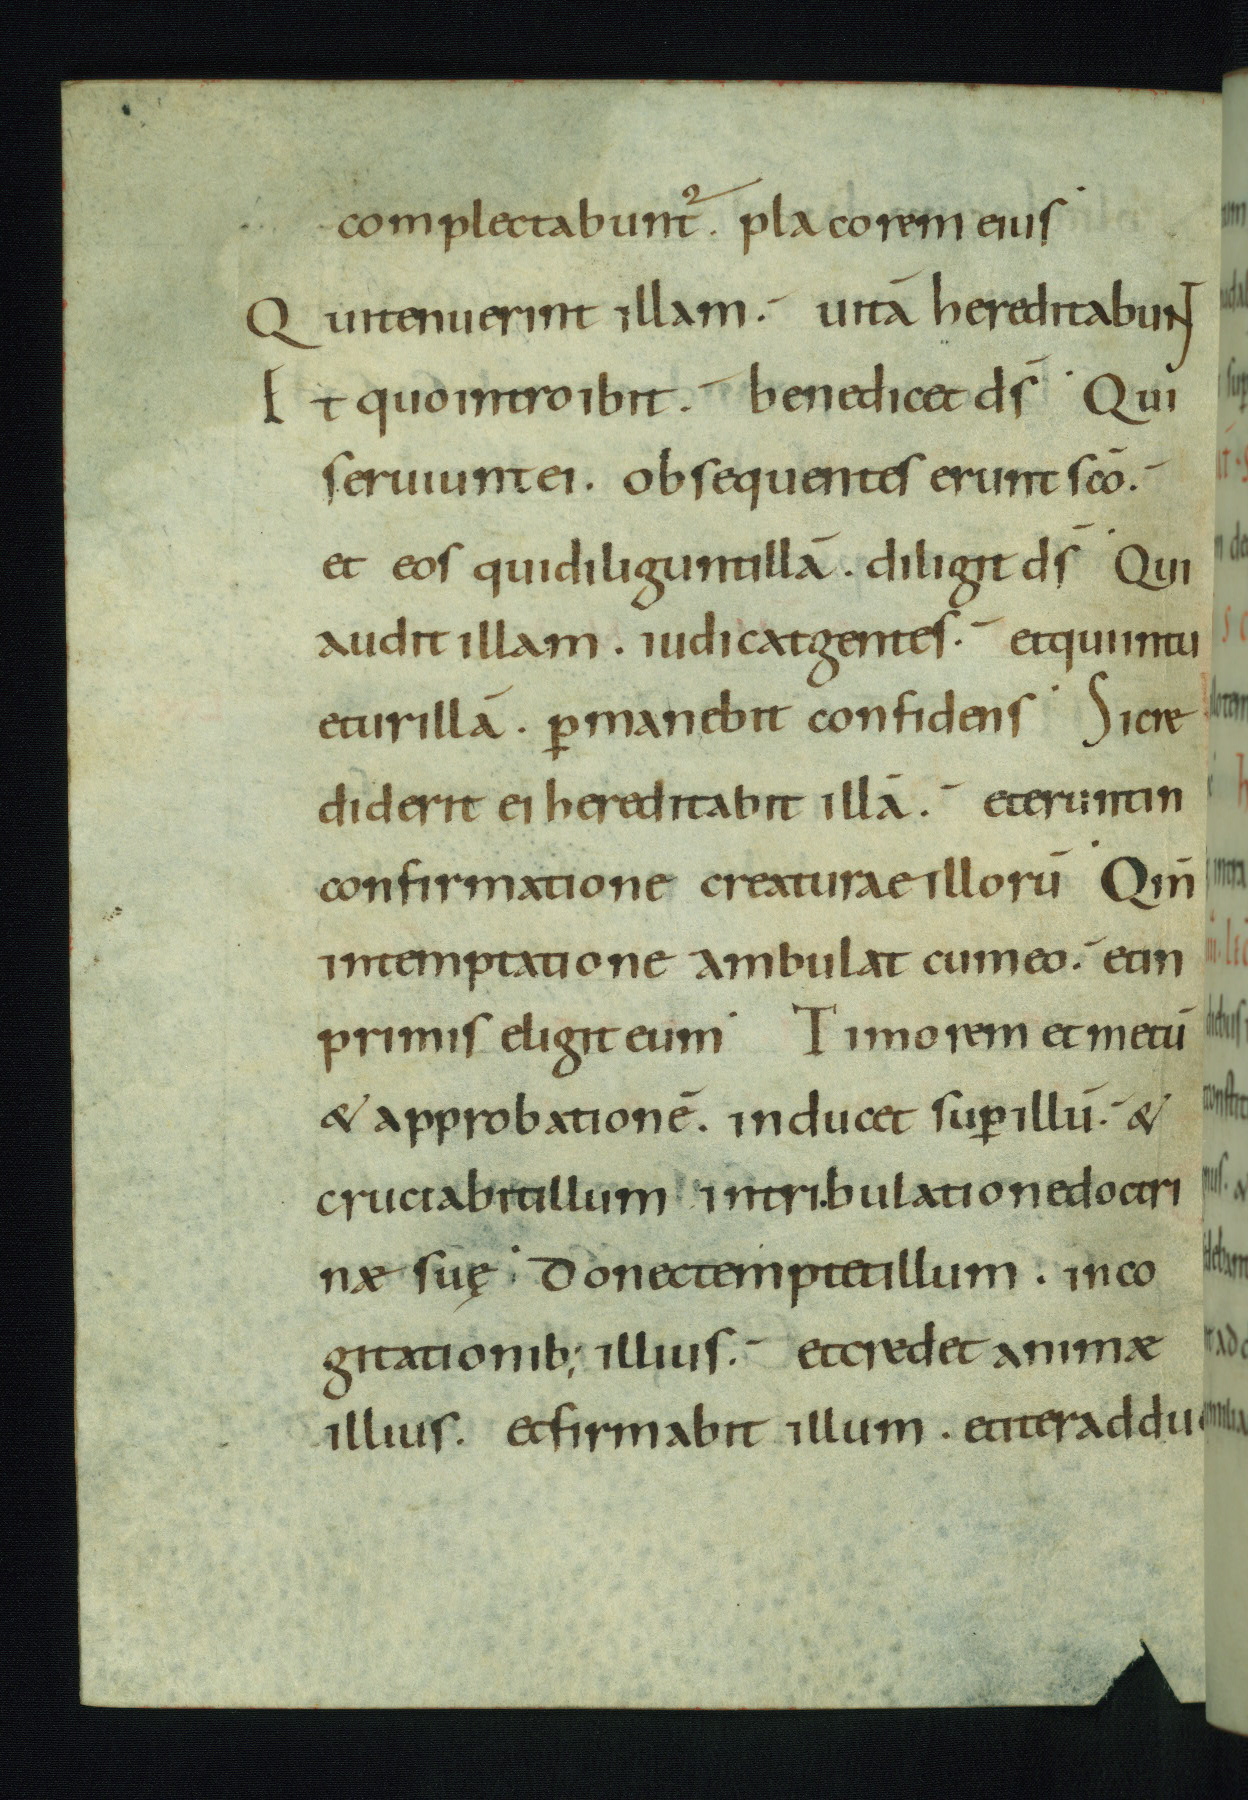 complectabunt᷑. placorem eius
Qui tenuerint illam. uitā hereditabunt
Et quo introibit. benedicet ds̄ Qui
seruiunt ei. obsequentes erunt scō.
et eos qui diligunt illā. diligit ds̄ Qui
audit illam. iudicat gentes. et qui intu
etur illā. ꝑmanebit confidens Si cre
diderit ei hereditabit illā. et erunt in
confirmatione creaturae illorū Qm̄
in temptatione ambulat cum eo. et in
primis eligit eum Timorem et metū
& approbationē. inducet suꝑ illū. &
cruciabit illum in tribulatione doctri
næ suę Donec temptet illum. in co
gitationib; illius. et credet animæ
illius. et firmabit illum. et iter addu